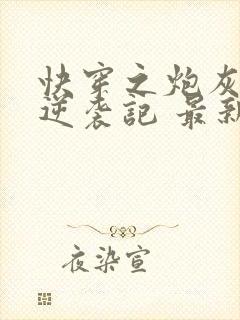 快穿之炮灰
逆袭記 最新
夜染宣